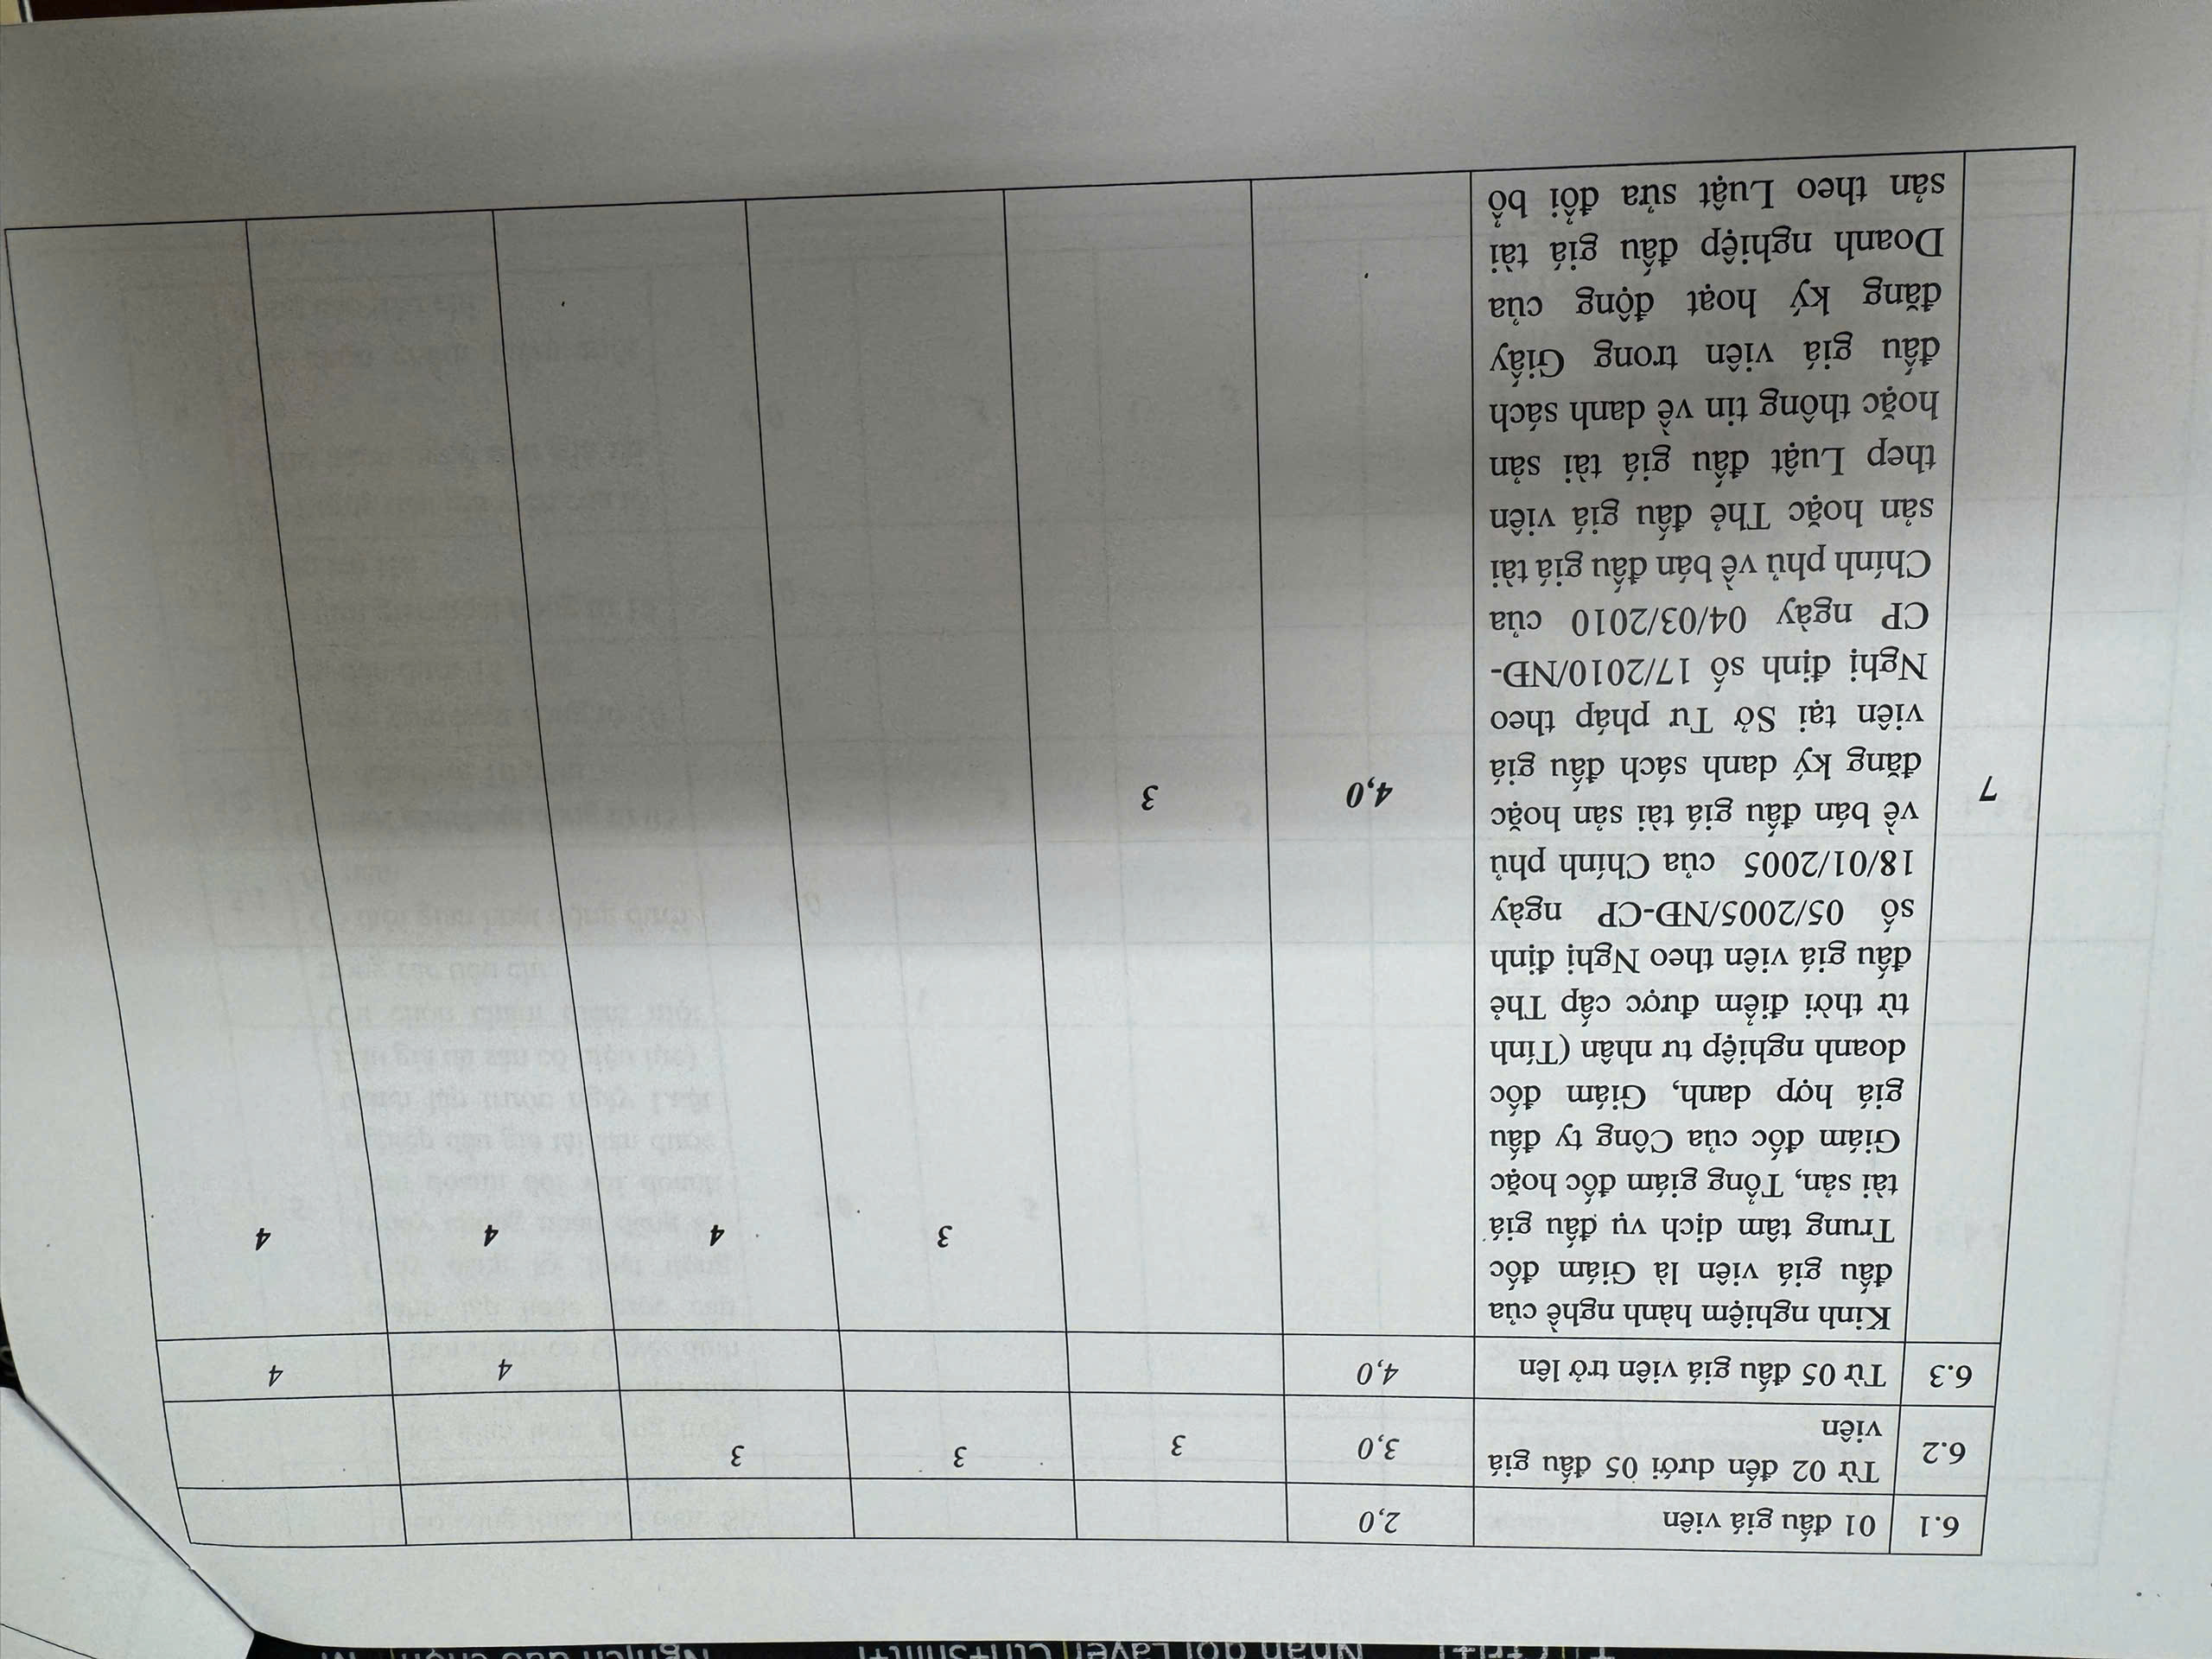 6.1 01 đấu giá viên 2,0
6.2 Từ 02 đến dưới 05 đấu giá 3,0 3 3 3
viên
6.3 Từ 05 đấu giá viên trở lên 4,0 4 4
Kinh nghiệm hành nghề của
đấu giá viên là Giám đốc
Trung tâm dịch vụ đấu giá 3 4 4 4
tài sản, Tổng giám đốc hoặc
Giám đốc của Công ty đấu
giá hợp danh, Giám đốc
doanh nghiệp tư nhân (Tính
từ thời điểm được cấp Thẻ
đấu giá viên theo Nghị định
số 05/2005/NĐ-CP ngày
18/01/2005 của Chính phủ
về bán đấu giá tài sản hoặc
7 đăng ký danh sách đấu giá 4,0 3
viên tại Sở Tư pháp theo
Nghị định số 17/2010/NĐ-
CP ngày 04/03/2010 của
Chính phủ về bán đấu giá tài
sản hoặc Thẻ đấu giá viên
thep Luật đấu giá tài sản
hoặc thông tin về danh sách
đấu giá viên trong Giấy
đăng ký hoạt động của
Doanh nghiệp đấu giá tài
sản theo Luật sửa đổi bổ